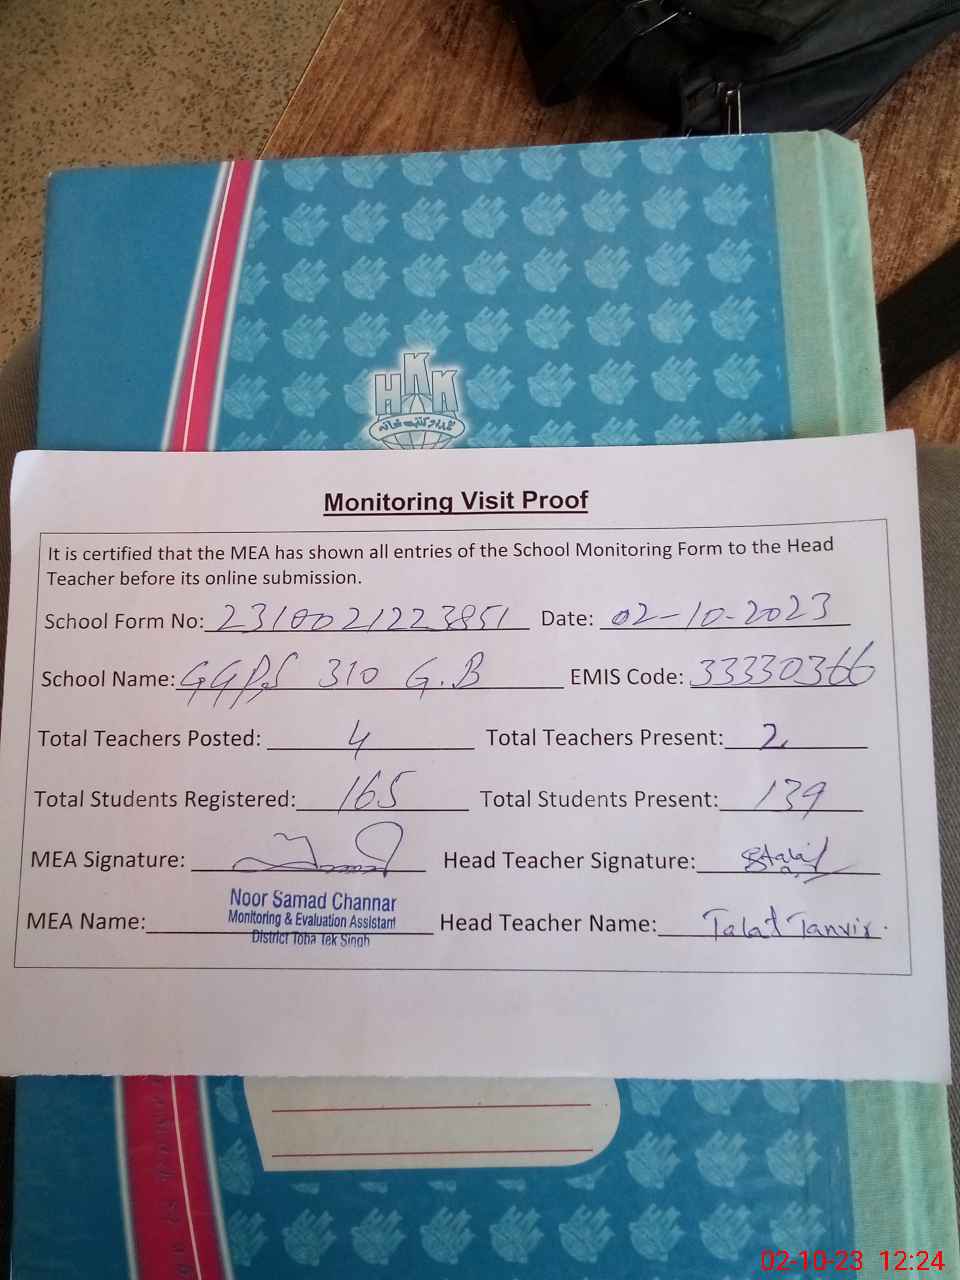 HKK
Monitoring Visit Proof
It is certified that the MEA has shown all entries of the School Monitoring Form to the Head
Teacher before its online submission.
School Form No: 2310021223851 Date: 02-10-2023
School Name: GGPS 310 G.B EMIS Code: 33330366
Total Teachers Posted: 4 Total Teachers Present: 2
Total Students Registered: 165 Total Students Present: 139
MEA Signature: Head Teacher Signature:
MEA Name: Noor Samad Channar
Monitoring & Evaluation Assistant
District Toba Tek Singh
Head Teacher Name: Talat Tanvir.
02-10-23 12:24